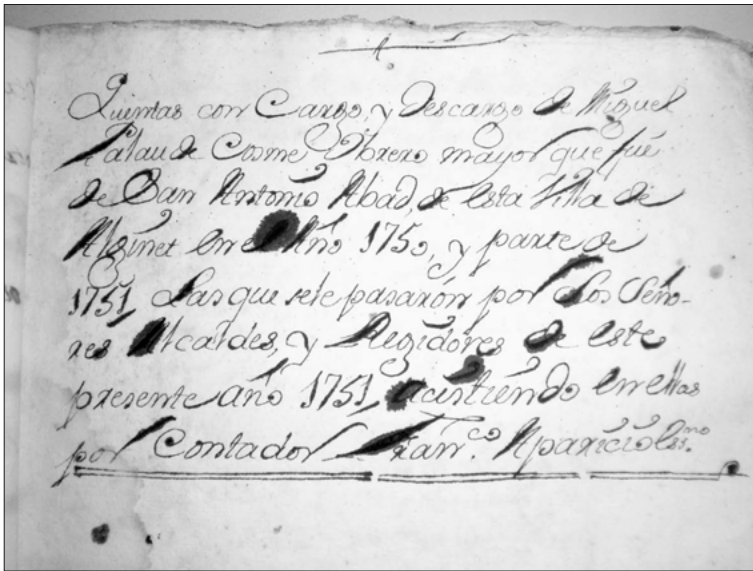 Quentas con Cargo, y Descargo de Miguel
Palau de Cosme Obrero mayor que fué
de San Antonio Abad, de esta Villa de
Alginet en el Año 1750, y parte de
1751, Las que se le pasarón por Los Seño-
res Alcaldes, y Regidores de este
presente año 1751, acistiendo en ellas
por Contador Fran.co Aparicio Ess.no